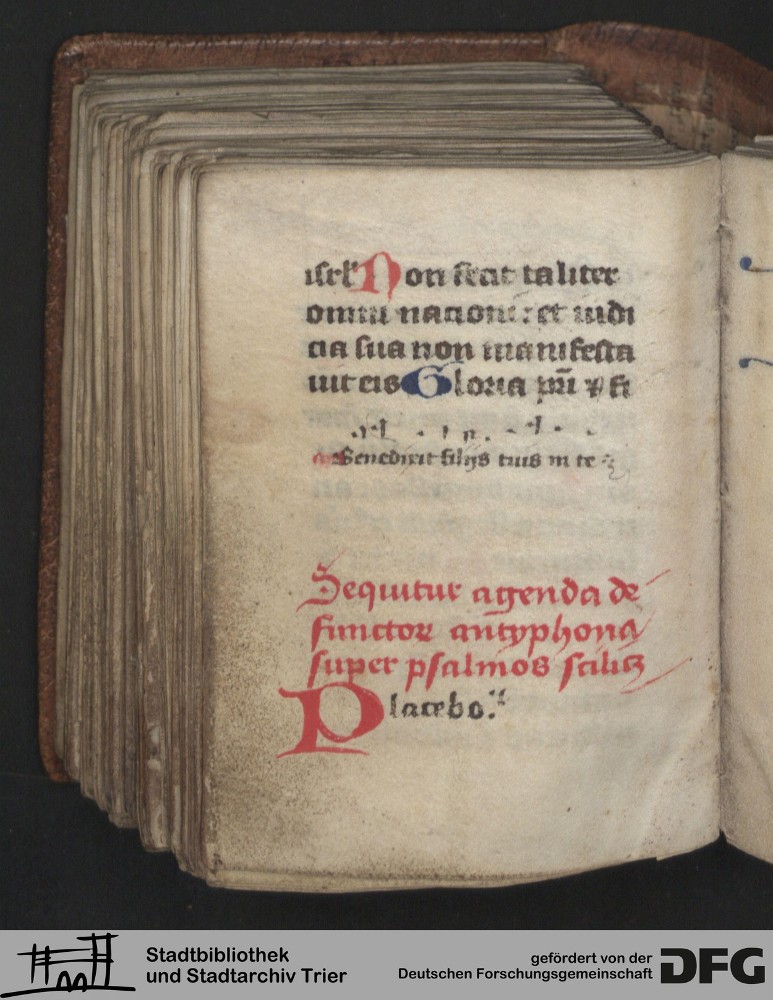 isrl' Non fecit taliter
omni nacioni : et iudi
cia sua non manifesta
uit eis Gloria pri̅ ⁊ fi
Benedixit filijs tuis in te
Sequitur agenda de
functor̅ antyphona
super psalmos scilicꝫ
Placebo.
Stadtbibliothek
und Stadtarchiv Trier
gefördert von der
Deutschen Forschungsgemeinschaft
DFG